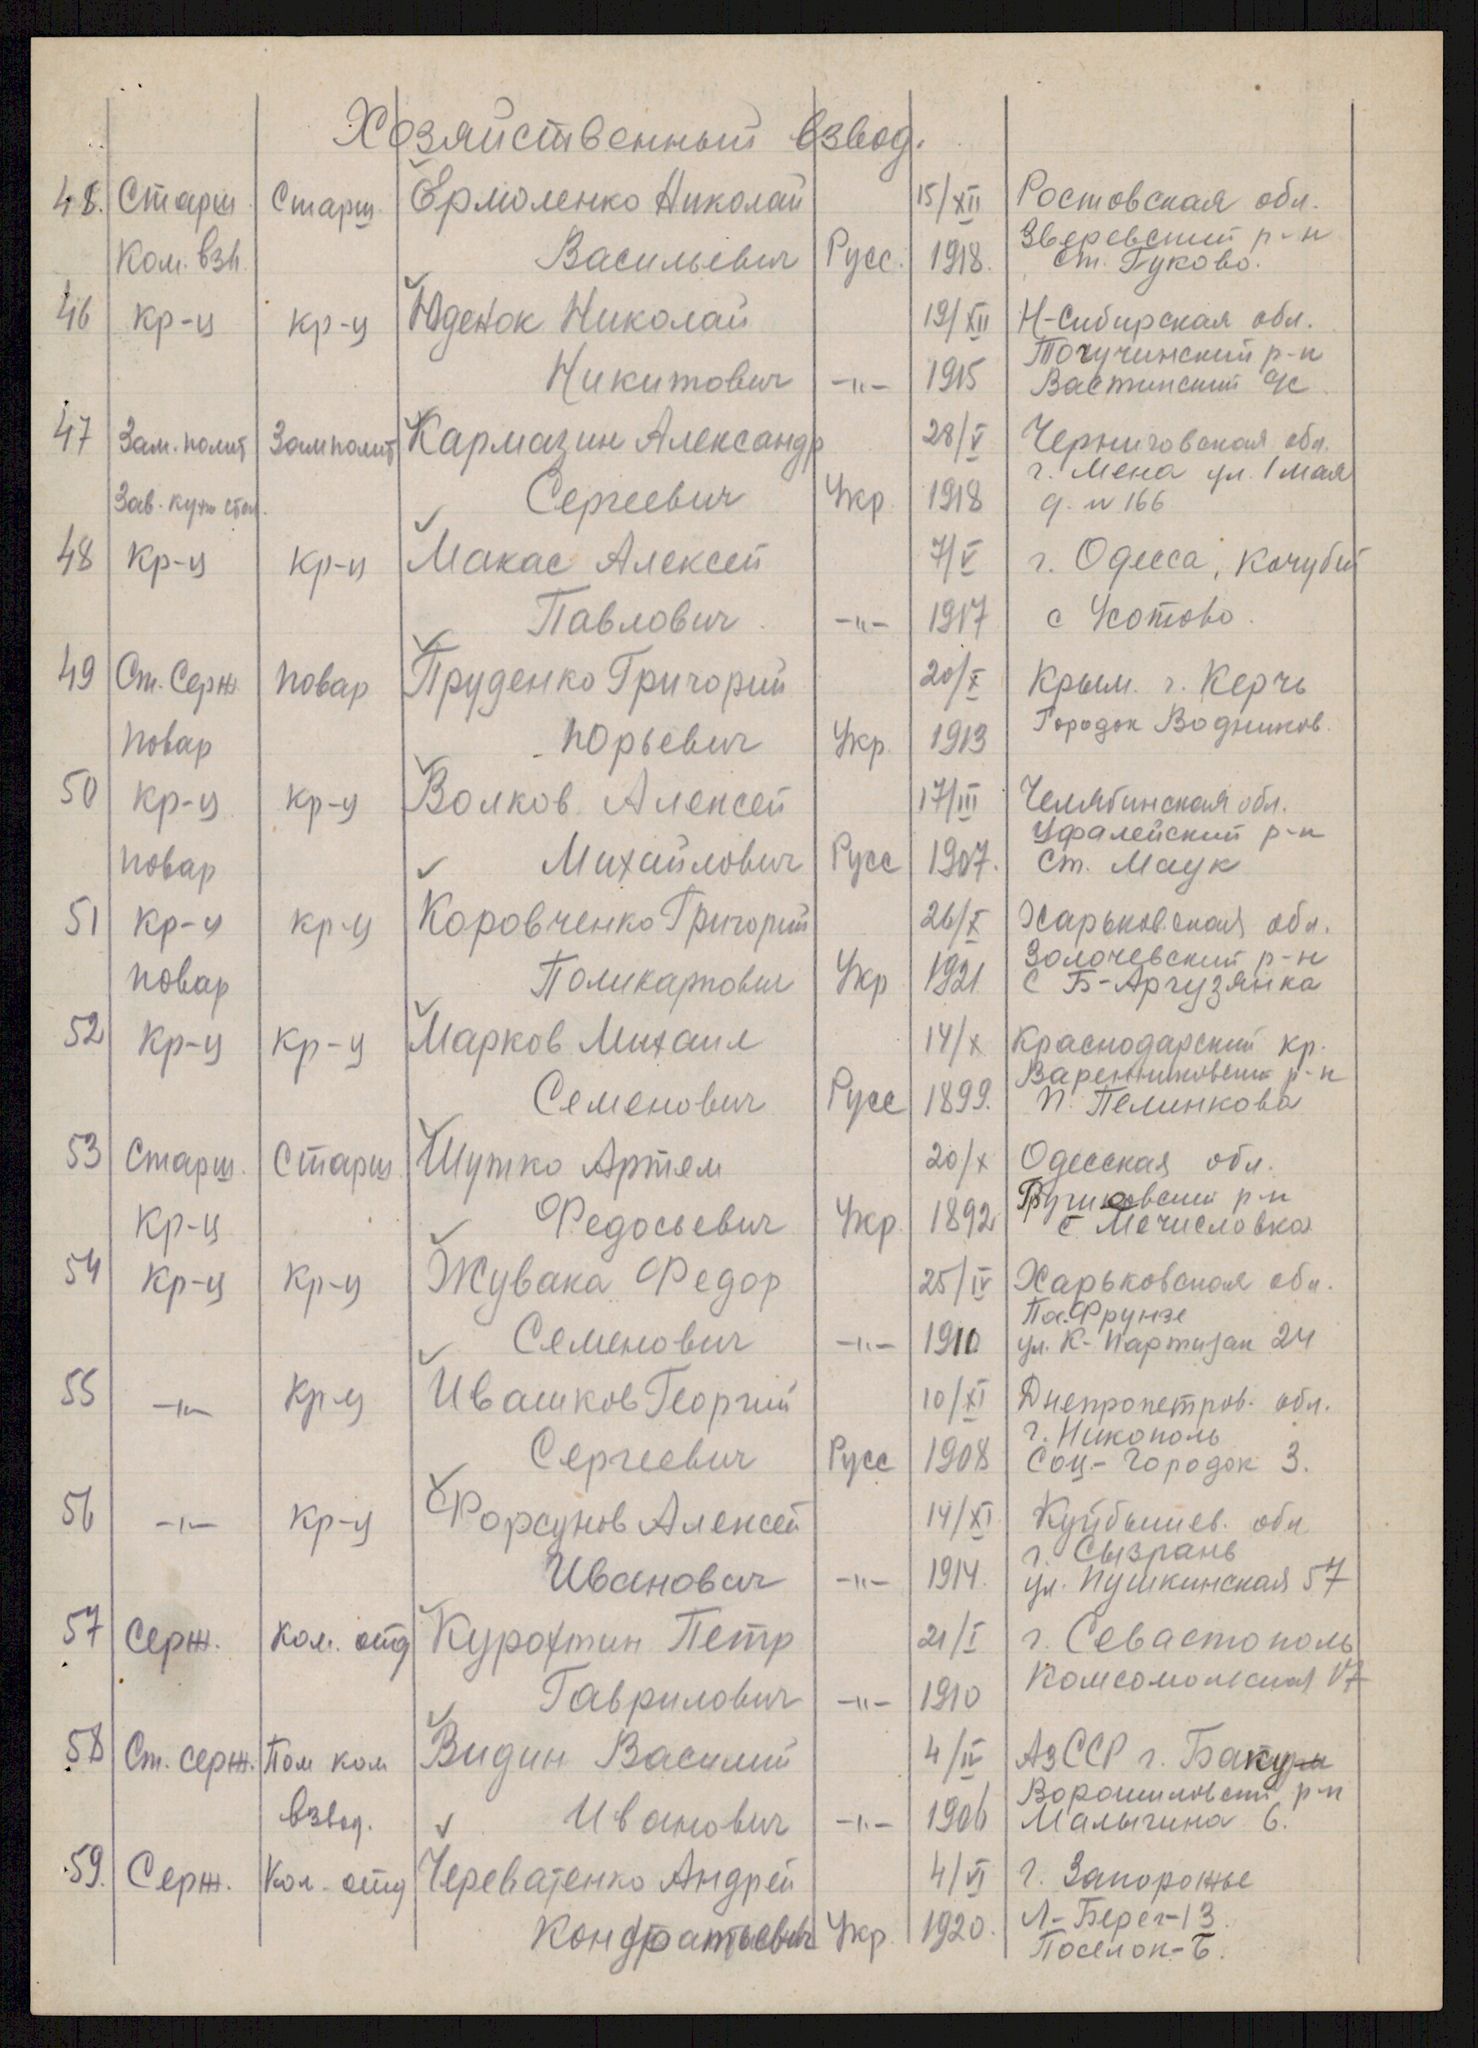 Хозяйственный взвод.
48. Старш. Старш. Ермоленко Николай 15/XII Ростовская обл.
Зверевский р-н
Ком. взв. Васильевич Русс. 1918. ст. Гуково.
46 кр-ц кр-ц Юденок Николай 19/XII Н-Сибирская обл.
Тогучинский р-н
Никитович -"- 1915 Вастинский с/с
47 Зам.полит Замполит Кармазин Александр 28/V Черниговская обл.
г. Мена ул. 1 мая
Зав. кухн стол. Сергеевич Укр. 1918 д. № 166
48 Кр-ц кр-ц Макас Алексей 7/V г. Одесса, Кочубей
Павлович -"- 1917 с Усотово.
49 Ст. Серж повар Пруденко Григорий 20/X Крым. г. Керчь
повар Юрьевич Укр. 1913 Городок Водников.
50 кр-ц кр-ц Волков Алексей 17/III Челябинская обл.
Уфалейский р-н
повар Михайлович Русс 1907. ст. Маук
51 кр-ц кр-ц Коровченко Григорий 26/X Харьковская обл.
Золочевский р-н
повар Поликарпович Укр 1921 с Б-Аргузянка
52 кр-ц кр-ц Марков Михаил 14/X Краснодарский кр.
Варениковский р-н
Семенович Русс 1899. п. Пелинкова
53 Старш. Старш. Шутко Артем 20/X Одесская обл.
р-н
Кр-ц Федосьевич Укр. 1892 с Мечисловка
54 Кр-ц Кр-ц Жувака Федор 25/IV Харьковская обл.
Па.Фрунзе
Семенович -"- 1910 ул. К-Партизан 24
55 -"- Кр-ц Ивашков Георгий 10/XI Днепропетров. обл.
г. Никополь
Сергеевич Русс 1908 Соц-Городок 3.
56 -"- кр-ц Форсунов Алексей 14/XI Куйбышев. обл
г. Сызрань
Иванович -"- 1914. ул. Пушкинская 57
57 Серж. ком. отд Курохтин Петр 21/I г. Севастополь
Гаврилович -"- 1910 Комсомольская 17
58 Ст. серж. Пом ком Видин Василий 4/IV АзССР г. Баку
Ворошиловский р-н
взвод. Иванович -"- 1906 Малыгина 6.
59. Серж. Ком. отд Череватенко Андрей 4/VI г. Запорожье
Л-Берег-13.
Кондратьевич Укр. 1920. Поселок-Б.